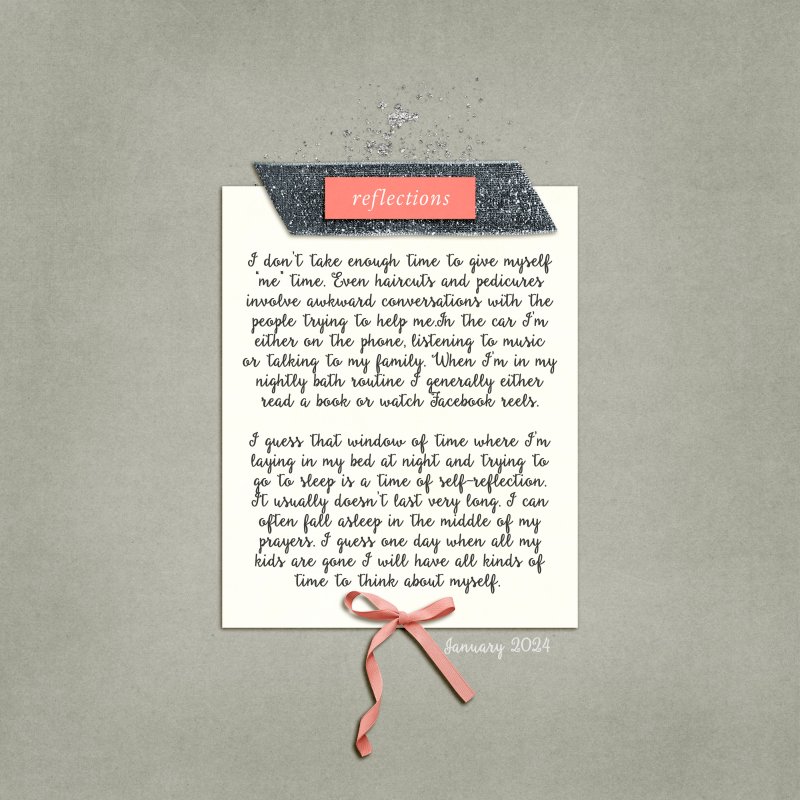 reflections
I don't take enough time to give myself
"me" time. Even haircuts and pedicures
involve awkward conversations with the
people trying to help me.In the car I'm
either on the phone, listening to music
or talking to my family. When I'm in my
nightly bath routine I generally either
read a book or watch Facebook reels.
I guess that window of time where I'm
laying in my bed at night and trying to
go to sleep is a time of self-reflection.
It usually doesn't last very long. I can
often fall asleep in the middle of my
prayers. I guess one day when all my
kids are gone I will have all kinds of
time to think about myself.
January 2024